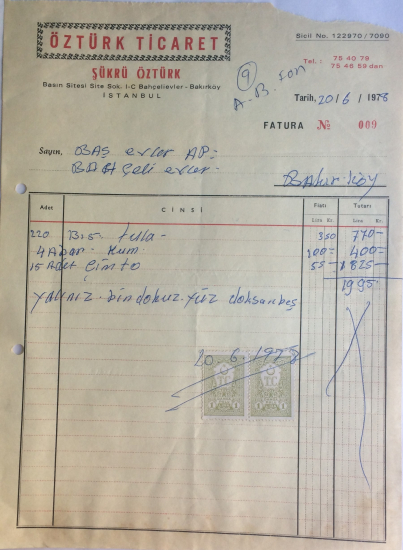 ÖZTÜRK TİCARET
ŞÜKRÜ ÖZTÜRK
Basın Sitesi Site Sok. 1-C Bahçelievler - Bakırköy
İSTANBUL
Sicil No. 122970/7090
Tel. : 75 40 79
75 46 59 dan
9
A-B. son
Tarih, 20/6/1978
FATURA № 009
Sayın, BAŞ evler AP=
BAH Çeli evler-
BAkır-köy
Adet CİNSİ Fiatı Tutarı
Lira Kr. Lira Kr.
220 tula- 350 770-
4 Kum. 100= 400=
15 Adet Çimto 55- 825-
1995-
YALNIZ-bin dokuz yüz doksanbeş
20.6.1978
TC
1 1 1 1